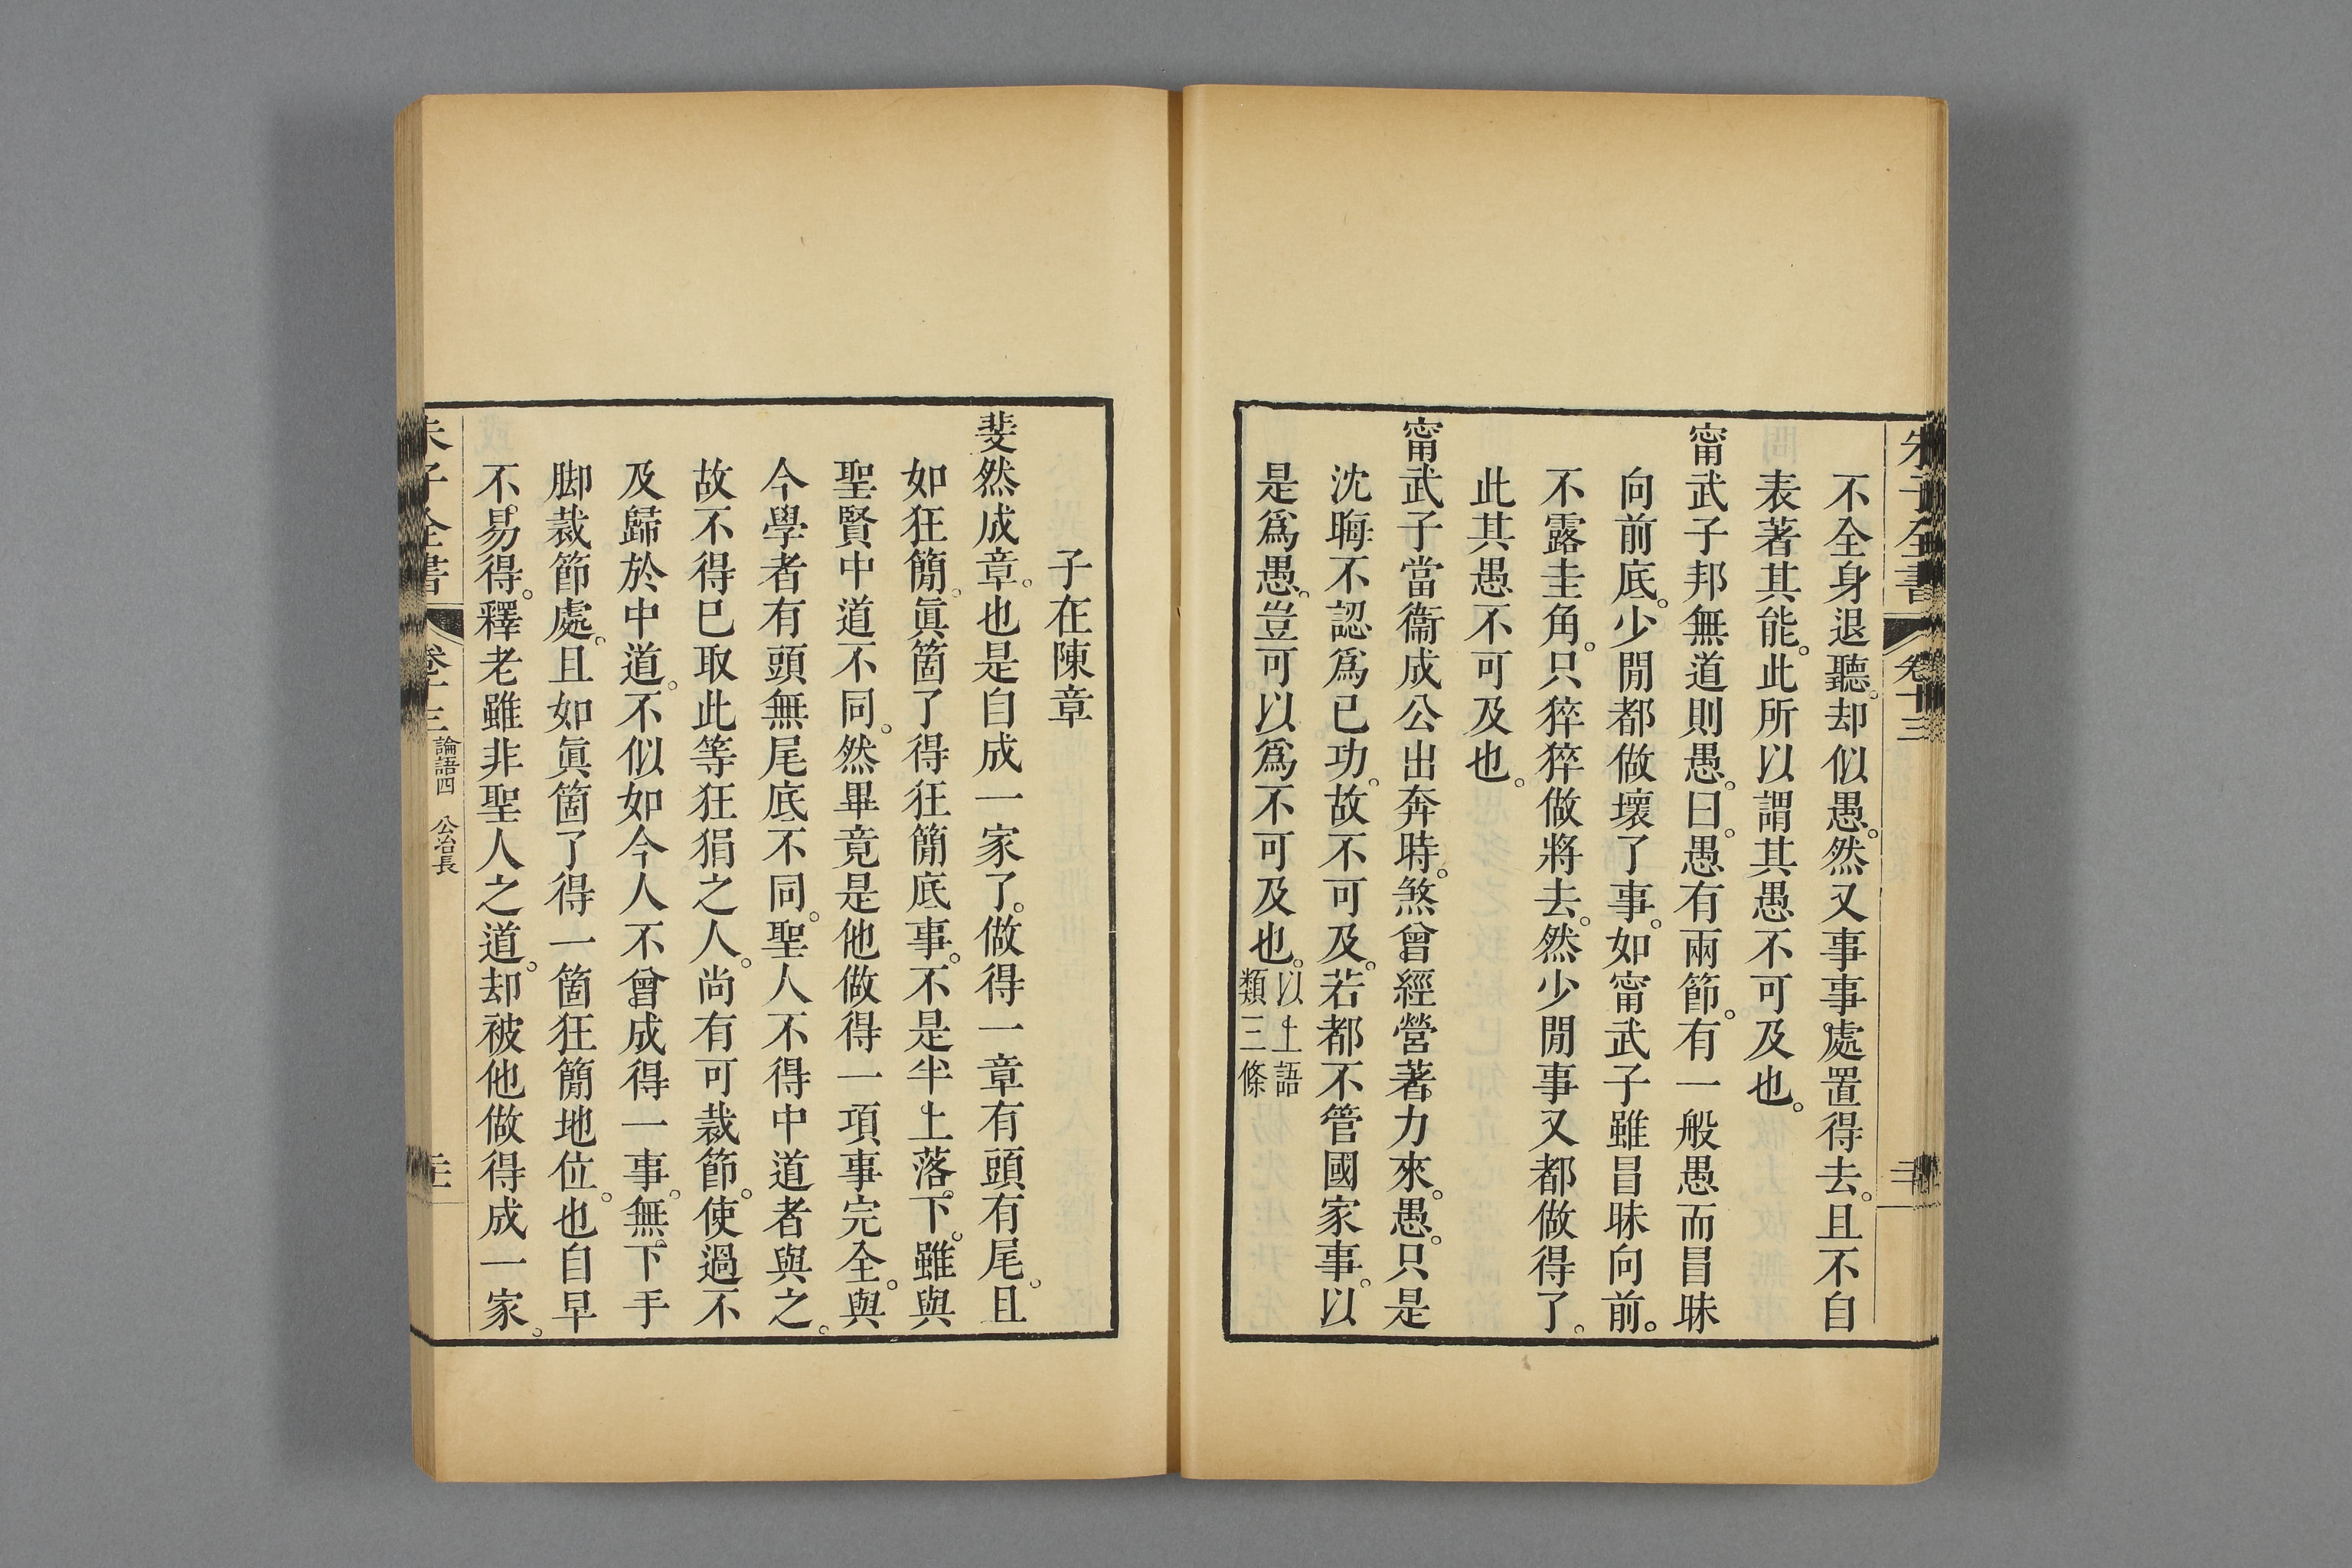 朱子全書 卷十三
不全身退聽。却似愚。然又事事處置得去。且不自
表著其能。此所以謂其愚不可及也。
甯武子邦無道則愚。曰。愚有兩節。有一般愚而昌昧
向前底。少閒都做壞了事。如甯武子雖昌昧向前。
不露圭角。只猝猝做將去。然少閒事又都做得了。
此其愚不可及也。
甯武子當衞成公出奔時。煞曾經營著力來。愚。只是
沈晦不認爲已功。故不可及。若都不管國家事。以
是爲愚。豈可以爲不可及也。以上語
類三條
子在陳章
斐然成章。也是自成一家了。做得一章有頭有尾。且
如狂簡。眞箇了得狂簡底事。不是半上落下。雖與
聖賢中道不同。然畢竟是他做得一項事完全。與
今學者有頭無尾底不同。聖人不得中道者與之。
故不得巳取此等狂狷之人。尚有可裁節。使過不
及歸於中道。不似如今人不曾成得一事。無下手
脚裁節處。且如眞箇了得一箇狂簡地位。也自早
不易得。釋老雖非聖人之道。却被他做得成一家。
朱子全書 卷十三 論語四 公冶長